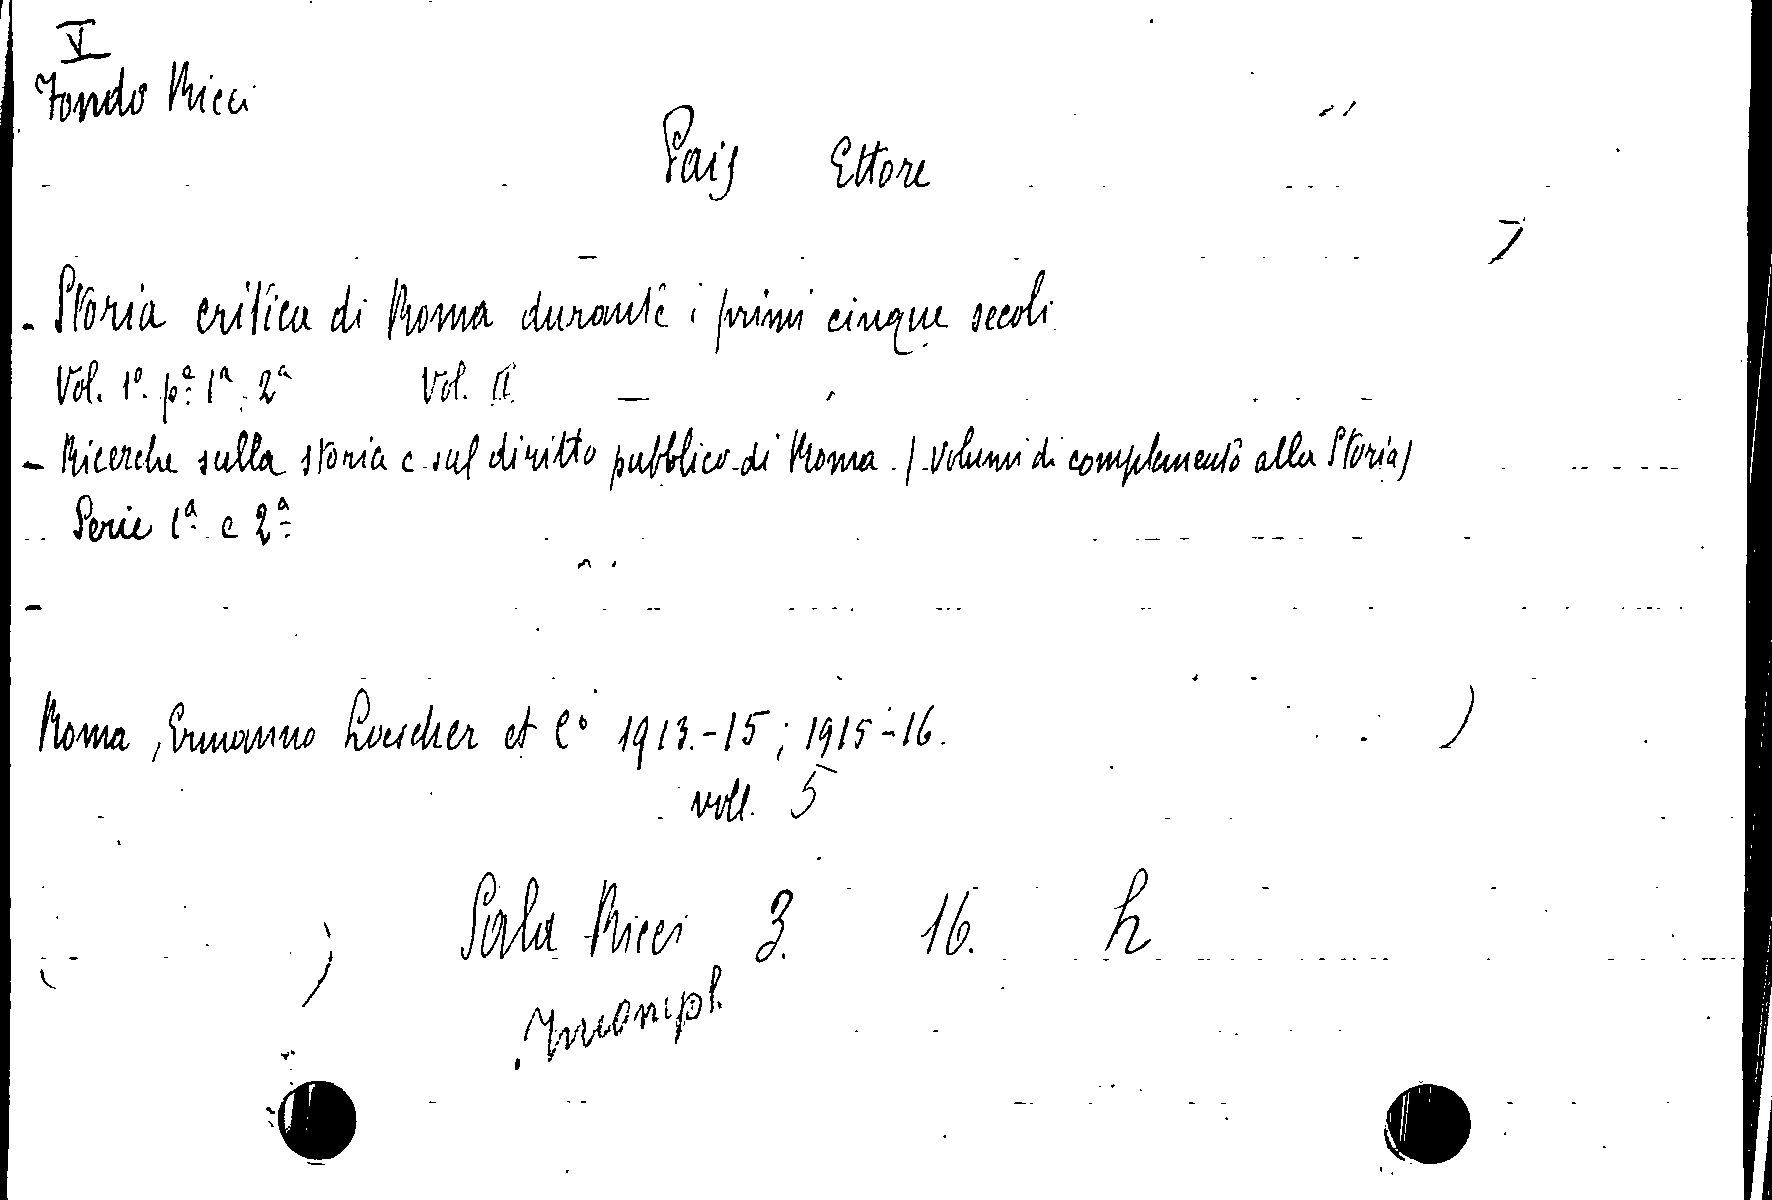 V
Fondo Ricci
Pais Ettore
- Storia critica di Roma durante i primi cinque secoli
Vol. 1º. pª. 1ª, 2ª Vol. II
- Ricerche sulla storia e sul diritto pubblico di Roma. (Volumi di complemento alla Storia)
Serie 1ª e 2ª
Roma, Ermanno Loescher et Cº 1913.-15; 1915-16.
voll. 5
Sala Ricci 3. 16. h
Incompl.